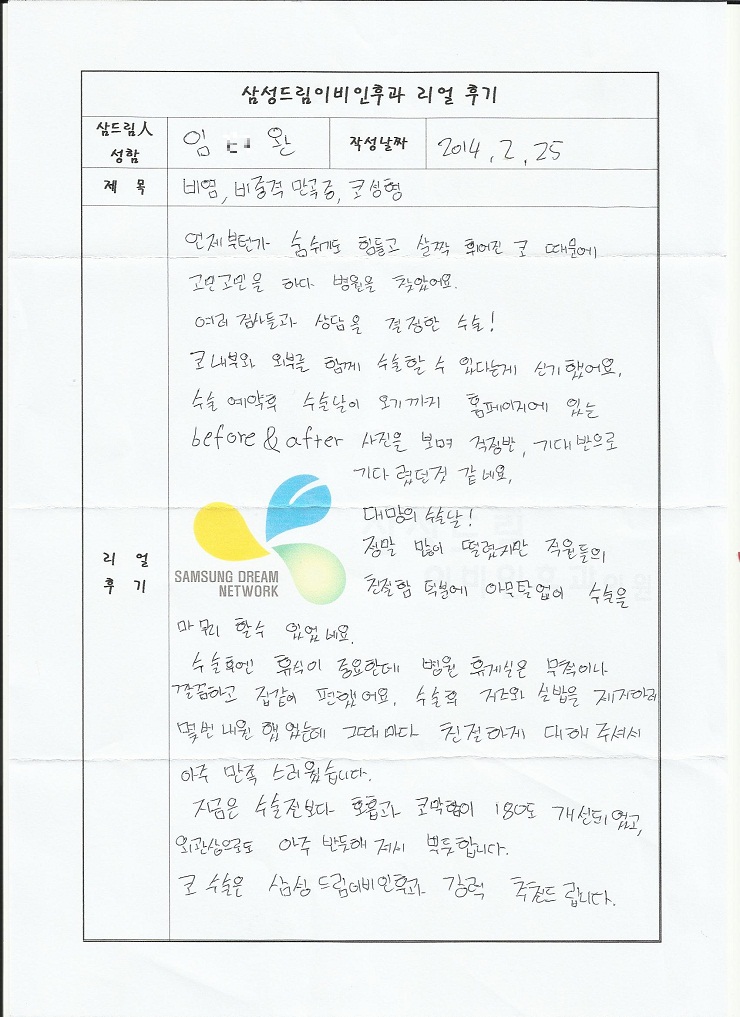 삼성드림이비인후과 리얼 후기
삼드림人
성함
임 완
작성날짜
2014. 2. 25
제 목
비염, 비중격 만곡증, 코성형
언제부턴가 숨쉬기도 힘들고 살짝 휘어진 코 때문에
고민고민을 하다 병원을 찾았어요.
여러 검사들과 상담을 결정한 수술!
코내부와 외부를 함께 수술할 수 있다는게 신기했어요.
수술 예약후 수술날이 오기까지 홈페이지에 있는
before & after 사진을 보며 걱정반, 기대반으로
기다렸던것 같네요.
대망의 수술날!
정말 많이 떨렸지만 직원들의
친절함 덕분에 아무탈없이 수술을
마무리 할수 있었네요.
수술후엔 휴식이 중요한데 병원 휴게실은 무척이나
깔끔하고 집같이 편했어요. 수술후 거즈와 실밥을 제거하러
몇번 내원 했었는데 그때마다 친절하게 대해 주셔서
아주 만족 스러웠습니다.
지금은 수술전보다 호흡과 코막힘이 180도 개선되었고,
외관상으로도 아주 반듯해져서 뿌듯합니다.
코 수술은 삼성드림이비인후과 강력 추천드립니다.
리 얼
후 기
SAMSUNG DREAM
NETWORK